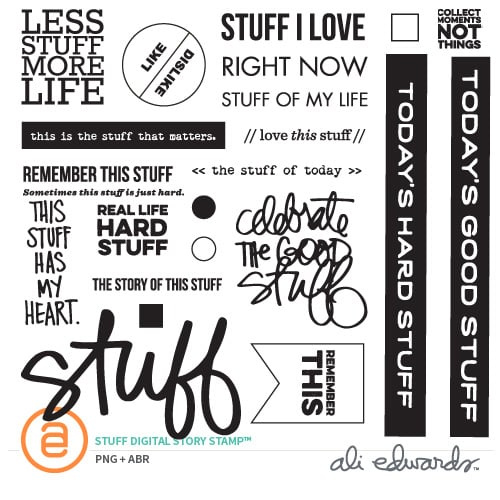 LESS
STUFF
MORE
LIFE
LIKE
DISLIKE
STUFF I LOVE
RIGHT NOW
STUFF OF MY LIFE
COLLECT
MOMENTS
NOT
THINGS
this is the stuff that matters.
// love this stuff //
TODAY'S HARD STUFF
TODAY'S GOOD STUFF
REMEMBER THIS STUFF
Sometimes this stuff is just hard.
<< the stuff of today >>
THIS
STUFF
HAS
MY
HEART.
REAL LIFE
HARD
STUFF
celebrate
THE GOOD
stuff
THE STORY OF THIS STUFF
stuff
REMEMBER
THIS
a
STUFF DIGITAL STORY STAMP™
PNG + ABR
ali edwards™